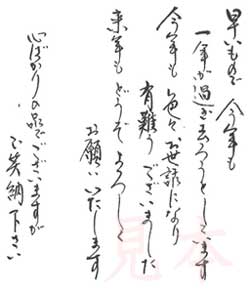 早いもので 今年も
一年が過ぎようとしています
今年も 色々お世話になり
有難う ございました
来年も どうぞ よろしく
お願いいたします
心ばかりの品でございますが
ご笑納下さい
見本